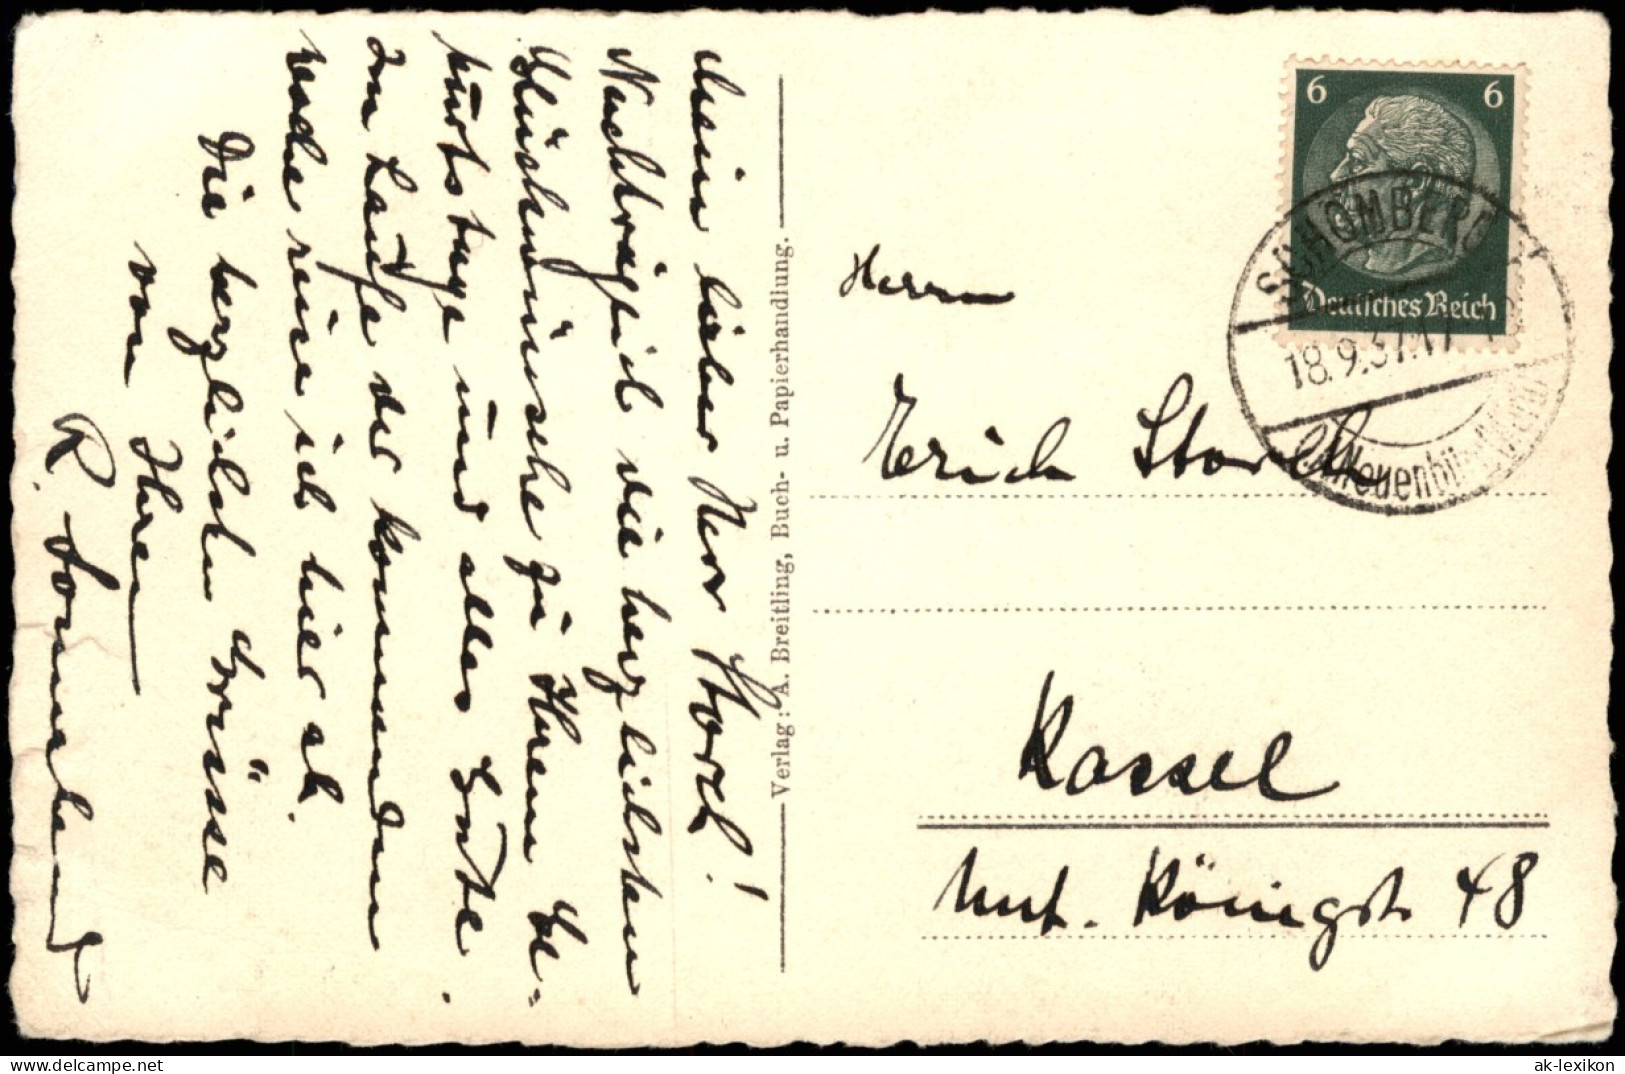 Mein lieber Herr Storch!
Nachträglich die herzlichsten
Glückwünsche zu Ihrem Ge-
burtstage und alles Gute.
Im Laufe der kommenden
Woche reise ich hier ab.
Die herzlichsten Grüsse
von Ihrem
R.
Verlag: A. Breitling, Buch- u. Papierhandlung.
6 6
Deutsches Reich
SCHÖMBERG
18.9.37.17
Neuenbürg
Herrn
Erich Storch
Kassel
Unt. Königstr 48
ak-lexikon